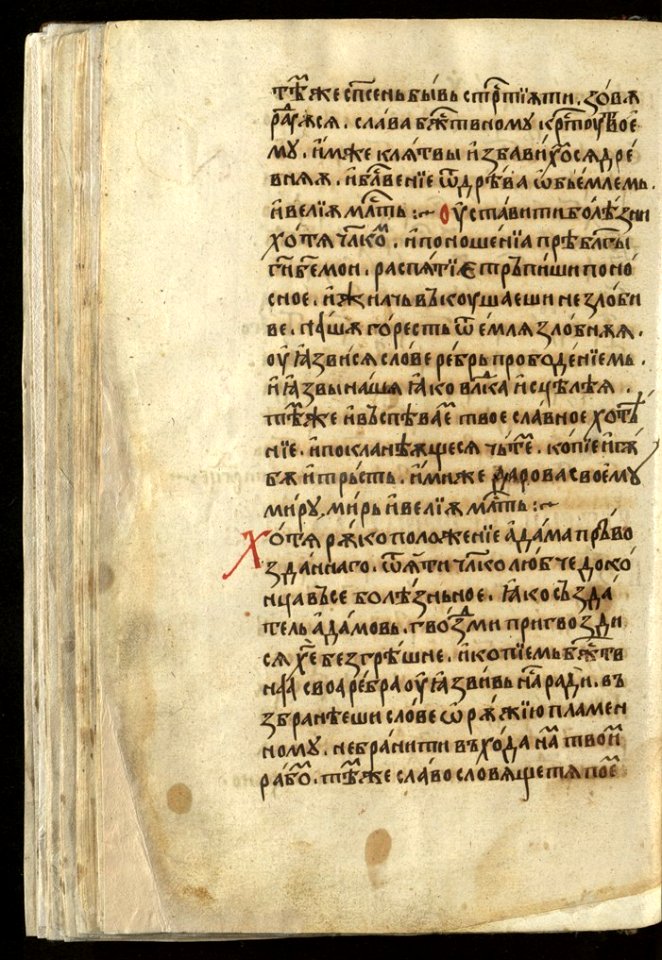 тѣ́мже сп҃сень бывь стр҇тїꙗти. зо́вѧ
ра́дꙋѧсѧ. сла́ва бж҇твному кр҇тоу твое
му. и́мже клѧ́твы и́збави́хѡ҇сѧ дре́
внѧѧ. и҆ бл҇ве́нїе ѿ дрѣ́ва ѡ҆бье́млемь.
и҆ ве́лїѧ мл҇ть :~ Оу҆ста́вити бо́лѣзни
хо́тѧ чл҃ко҇. и҆ поноше́нїа прѣбл҃гы
ги҃ бе҃ мои. распѧ́тїе трьпи́ши поно́
сное. и҆ жльчь въкоуша́еши незло́би
ве. на́шѧ го́ресть ѿе́млѧ зло́бнѧѧ.
оу҆ꙗ҆зви́сѧ сло́ве ре́брь прободе́нїемь.
и҆ ꙗ҆́звы на́шѧ ꙗ҆́ко вл҃дка и҆сцѣлѣ́ѧ.
тѣ́мже и҆ въспѣва́е҇ твое сла́вное хотѣ́
нїе. и҆ покланѣ́ѧщесѧ чьте҇. ко́пїе и҆ гѫ́
бѫ и҆ трьсть. и҆́миже дарова̀ своему̀
ми́ру, мирь и҆ ве́лїѧ мл҇ть :~
Хо́тѧ рѫ́ко положе́нїе а҆да́ма пръ́во
зда́ннаго. ѿѧ́ти чл҃колю́бче до ко
нца̀ въсе болѣ́зньное. ꙗ҆́ко създа́
тель а҆да́мовь. гво́здми пригвозди
сѧ хе҃ безгрѣ́шне. и҆ ко́пїемь бж҇тв
наа своа ре́бра оу҆ꙗ҆зви́вь на́ ради. въ
збранѣ́еши сло́ве ѡ҆рѫ́жїю пла́мен
ному. не брани́ти въхо́да на́ твои́
рабо́. тѣ́мже славосло́вѧще тѧ пое́